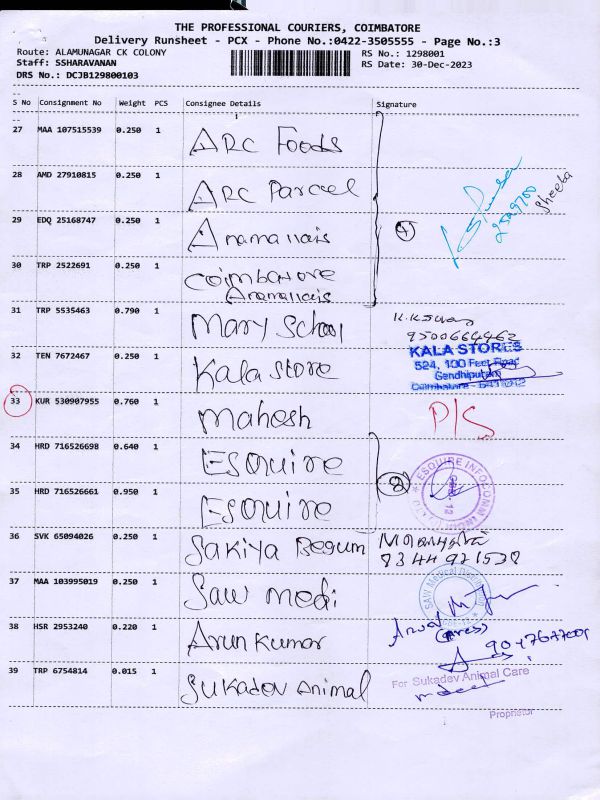 THE PROFESSIONAL COURIERS, COIMBATORE
Delivery Runsheet - PCX - Phone No.:0422-3505555 - Page No.:3
Route: ALAMUNAGAR CK COLONY
Staff: SSHARAVANAN
DRS No.: DCJB129800103
RS No.: 1298001
RS Date: 30-Dec-2023
S No Consignment No Weight PCS Consignee Details Signature
27 MAA 107515539 0.250 1 ARC Foods
28 AMD 27910815 0.250 1 ARC Parcel
29 EDQ 25168747 0.250 1 Anamallais
30 TRP 2522691 0.250 1 Coimbatore
Anamallais
4
Sheela
31 TRP 5535463 0.790 1 Mary School
9500664462
32 TEN 7672467 0.250 1 Kala Store
KALA STORES
524, 100 Feet Road
Gandhipuram
Coimbatore - 641012
33 KUR 530907955 0.760 1 Mahesh P/S
34 HRD 716526698 0.640 1 Esquire
2
35 HRD 716526661 0.950 1 Esquire
36 SVK 65094026 0.250 1 Sakiya Begum
8344921538
37 MAA 103995019 0.250 1 Saw medi
38 HSR 2953240 0.220 1 Arun Kumar
39 TRP 6754814 0.015 1 Sukadev Animal
For Sukadev Animal Care
Proprietor